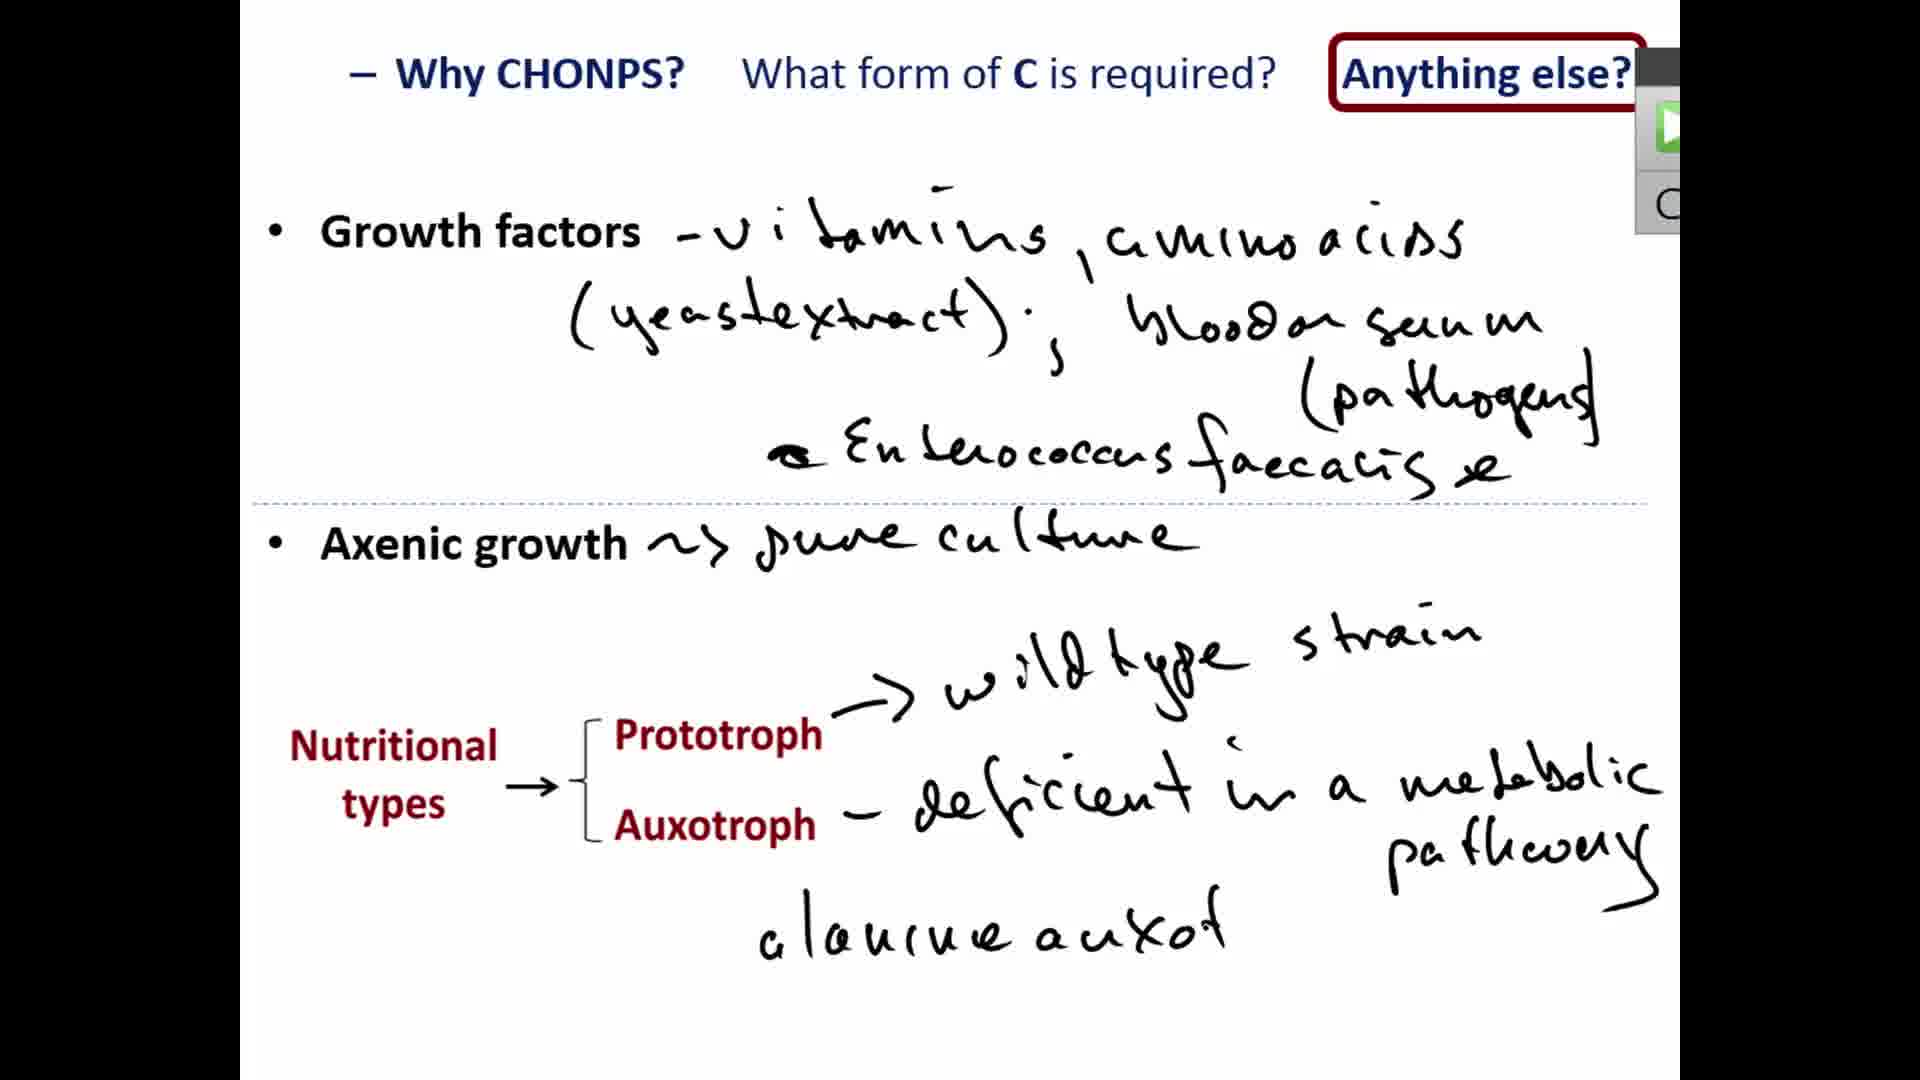 – Why CHONPS? What form of C is required? Anything else?
• Growth factors - vitamins, amino acids
(yeast extract); blood or serum
(pathogens)
- Enterococcus faecalis
• Axenic growth ~> pure culture
Nutritional types → Prototroph → wild type strain
Auxotroph – deficient in a metabolic
pathway
alanine auxot